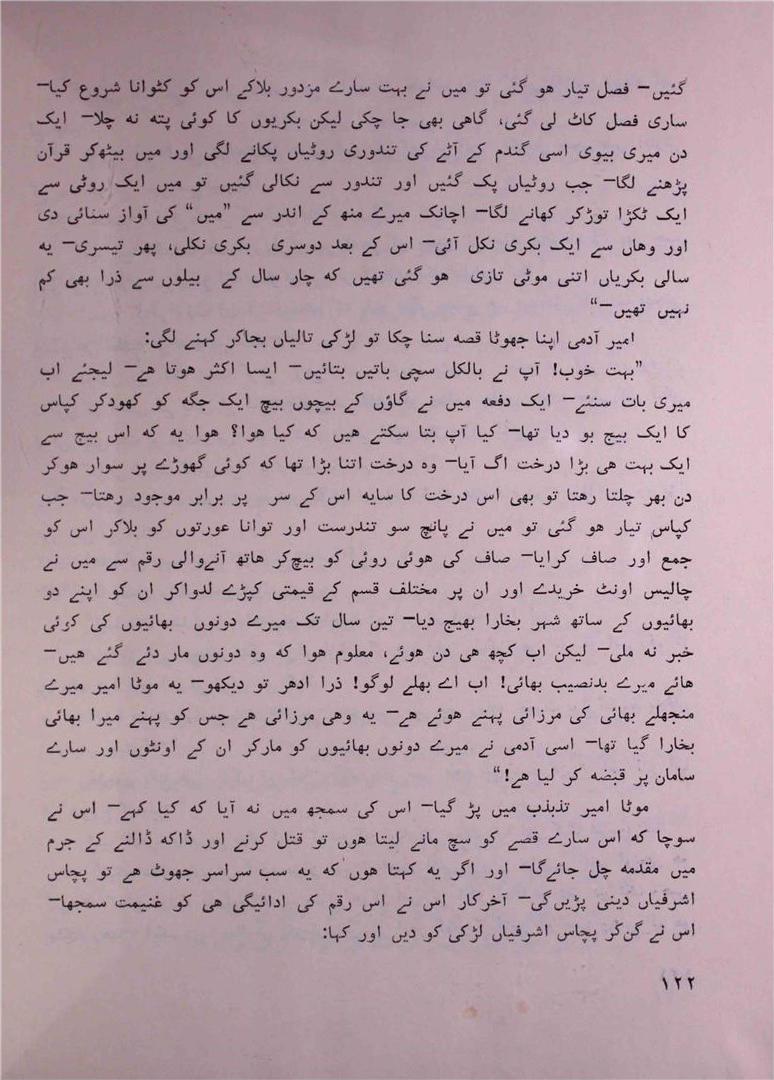 گئیں— فصل تیار هو گئی تو میں نے بہت سارے مزدور بلاکے اس کو کٹوانا شروع کیا—
ساری فصل کاٹ لی گئی، گاهی بھی جا چکی لیکن بکریوں کا کوئی پتہ نہ چلا— ایک
دن میری بیوی اسی گندم کے آٹے کی تندوری روٹیاں پکانے لگی اور میں بیٹھ کر قرآن
پڑھنے لگا— جب روٹیاں پک گئیں اور تندور سے نکالی گئیں تو میں ایک روٹی سے
ایک ٹکڑا توڑکر کھانے لگا— اچانک میرے منھ کے اندر سے ”میں“ کی آواز سنائی دی
اور وهاں سے ایک بکری نکل آئی— اس کے بعد دوسری بکری نکلی، پھر تیسری— یہ
سالی بکریاں اتنی موٹی تازی هو گئی تھیں کہ چار سال کے بیلوں سے ذرا بھی کم
نہیں تھیں—“
امیر آدمی اپنا جھوٹا قصہ سنا چکا تو لڑکی تالیاں بجاکر کہنے لگی:
”بہت خوب! آپ نے بالکل سچی باتیں بتائیں— ایسا اکثر هوتا هے— لیجئے اب
میری بات سنئے— ایک دفعہ میں نے گاؤں کے بیچوں بیچ ایک جگہ کو کھودکر کپاس
کا ایک بیج بو دیا تھا— کیا آپ بتا سکتے هیں کہ کیا هوا؟ هوا یہ کہ اس بیج سے
ایک بہت هی بڑا درخت اگ آیا— وہ درخت اتنا بڑا تھا کہ کوئی گھوڑے پر سوار هوکر
دن بھر چلتا رهتا تو بھی اس درخت کا سایہ اس کے سر پر برابر موجود رهتا— جب
کپاس تیار هو گئی تو میں نے پانچ سو تندرست اور توانا عورتوں کو بلاکر اس کو
جمع اور صاف کرایا— صاف کی هوئی روئی کو بیچ کر هاتھ آنےوالی رقم سے میں نے
چالیس اونٹ خریدے اور ان پر مختلف قسم کے قیمتی کپڑے لدواکر ان کو اپنے دو
بھائیوں کے ساتھ شہر بخارا بھیج دیا— تین سال تک میرے دونوں بھائیوں کی کوئی
خبر نہ ملی— لیکن اب کچھ هی دن هوئے، معلوم هوا کہ وہ دونوں مار دئے گئے هیں—
هائے میرے بدنصیب بھائی! اب اے بھلے لوگو! ذرا ادهر تو دیکھو— یہ موٹا امیر میرے
منجھلے بھائی کی مرزائی پہنے هوئے هے— یہ وهی مرزائی هے جس کو پہنے میرا بھائی
بخارا گیا تھا— اسی آدمی نے میرے دونوں بھائیوں کو مارکر ان کے اونٹوں اور سارے
سامان پر قبضہ کر لیا هے!“
موٹا امیر تذبذب میں پڑ گیا— اس کی سمجھ میں نہ آیا کہ کیا کہے— اس نے
سوچا کہ اس سارے قصے کو سچ مانے لیتا هوں تو قتل کرنے اور ڈاکہ ڈالنے کے جرم
میں مقدمہ چل جائےگا— اور اگر یہ کہتا هوں کہ یہ سب سراسر جھوٹ هے تو پچاس
اشرفیاں دینی پڑیں گی— آخرکار اس نے اس رقم کی ادائیگی هی کو غنیمت سمجھا—
اس نے گن کر پچاس اشرفیاں لڑکی کو دیں اور کہا:
۱۲۲